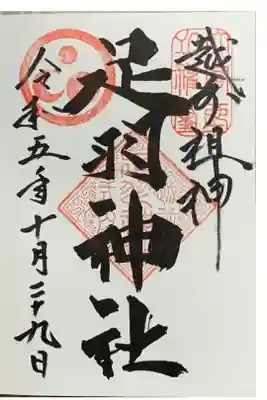 越の祖神
足羽神社
令和五年十月二十九日